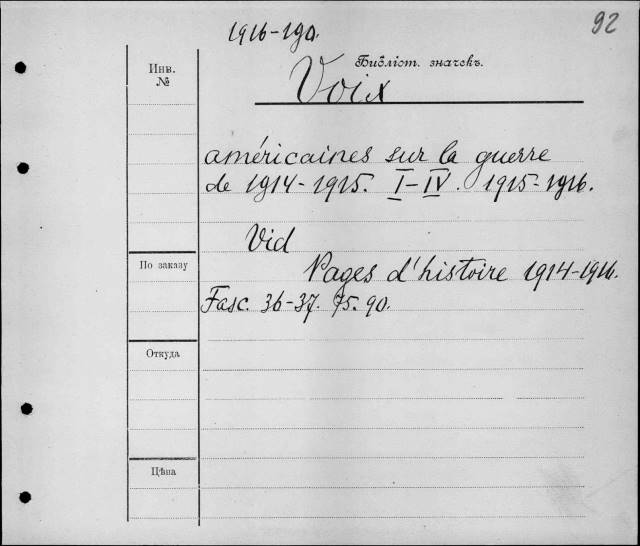 92
1916-190.
Библіот. значекъ.
Инв.
№
Voix
américaines sur la guerre
de 1914-1915. I-IV. 1915-1916.
Vid
По заказу
Pages d'histoire 1914-1916.
Fasc. 36-37. 75. 90.
Откуда
Цѣна